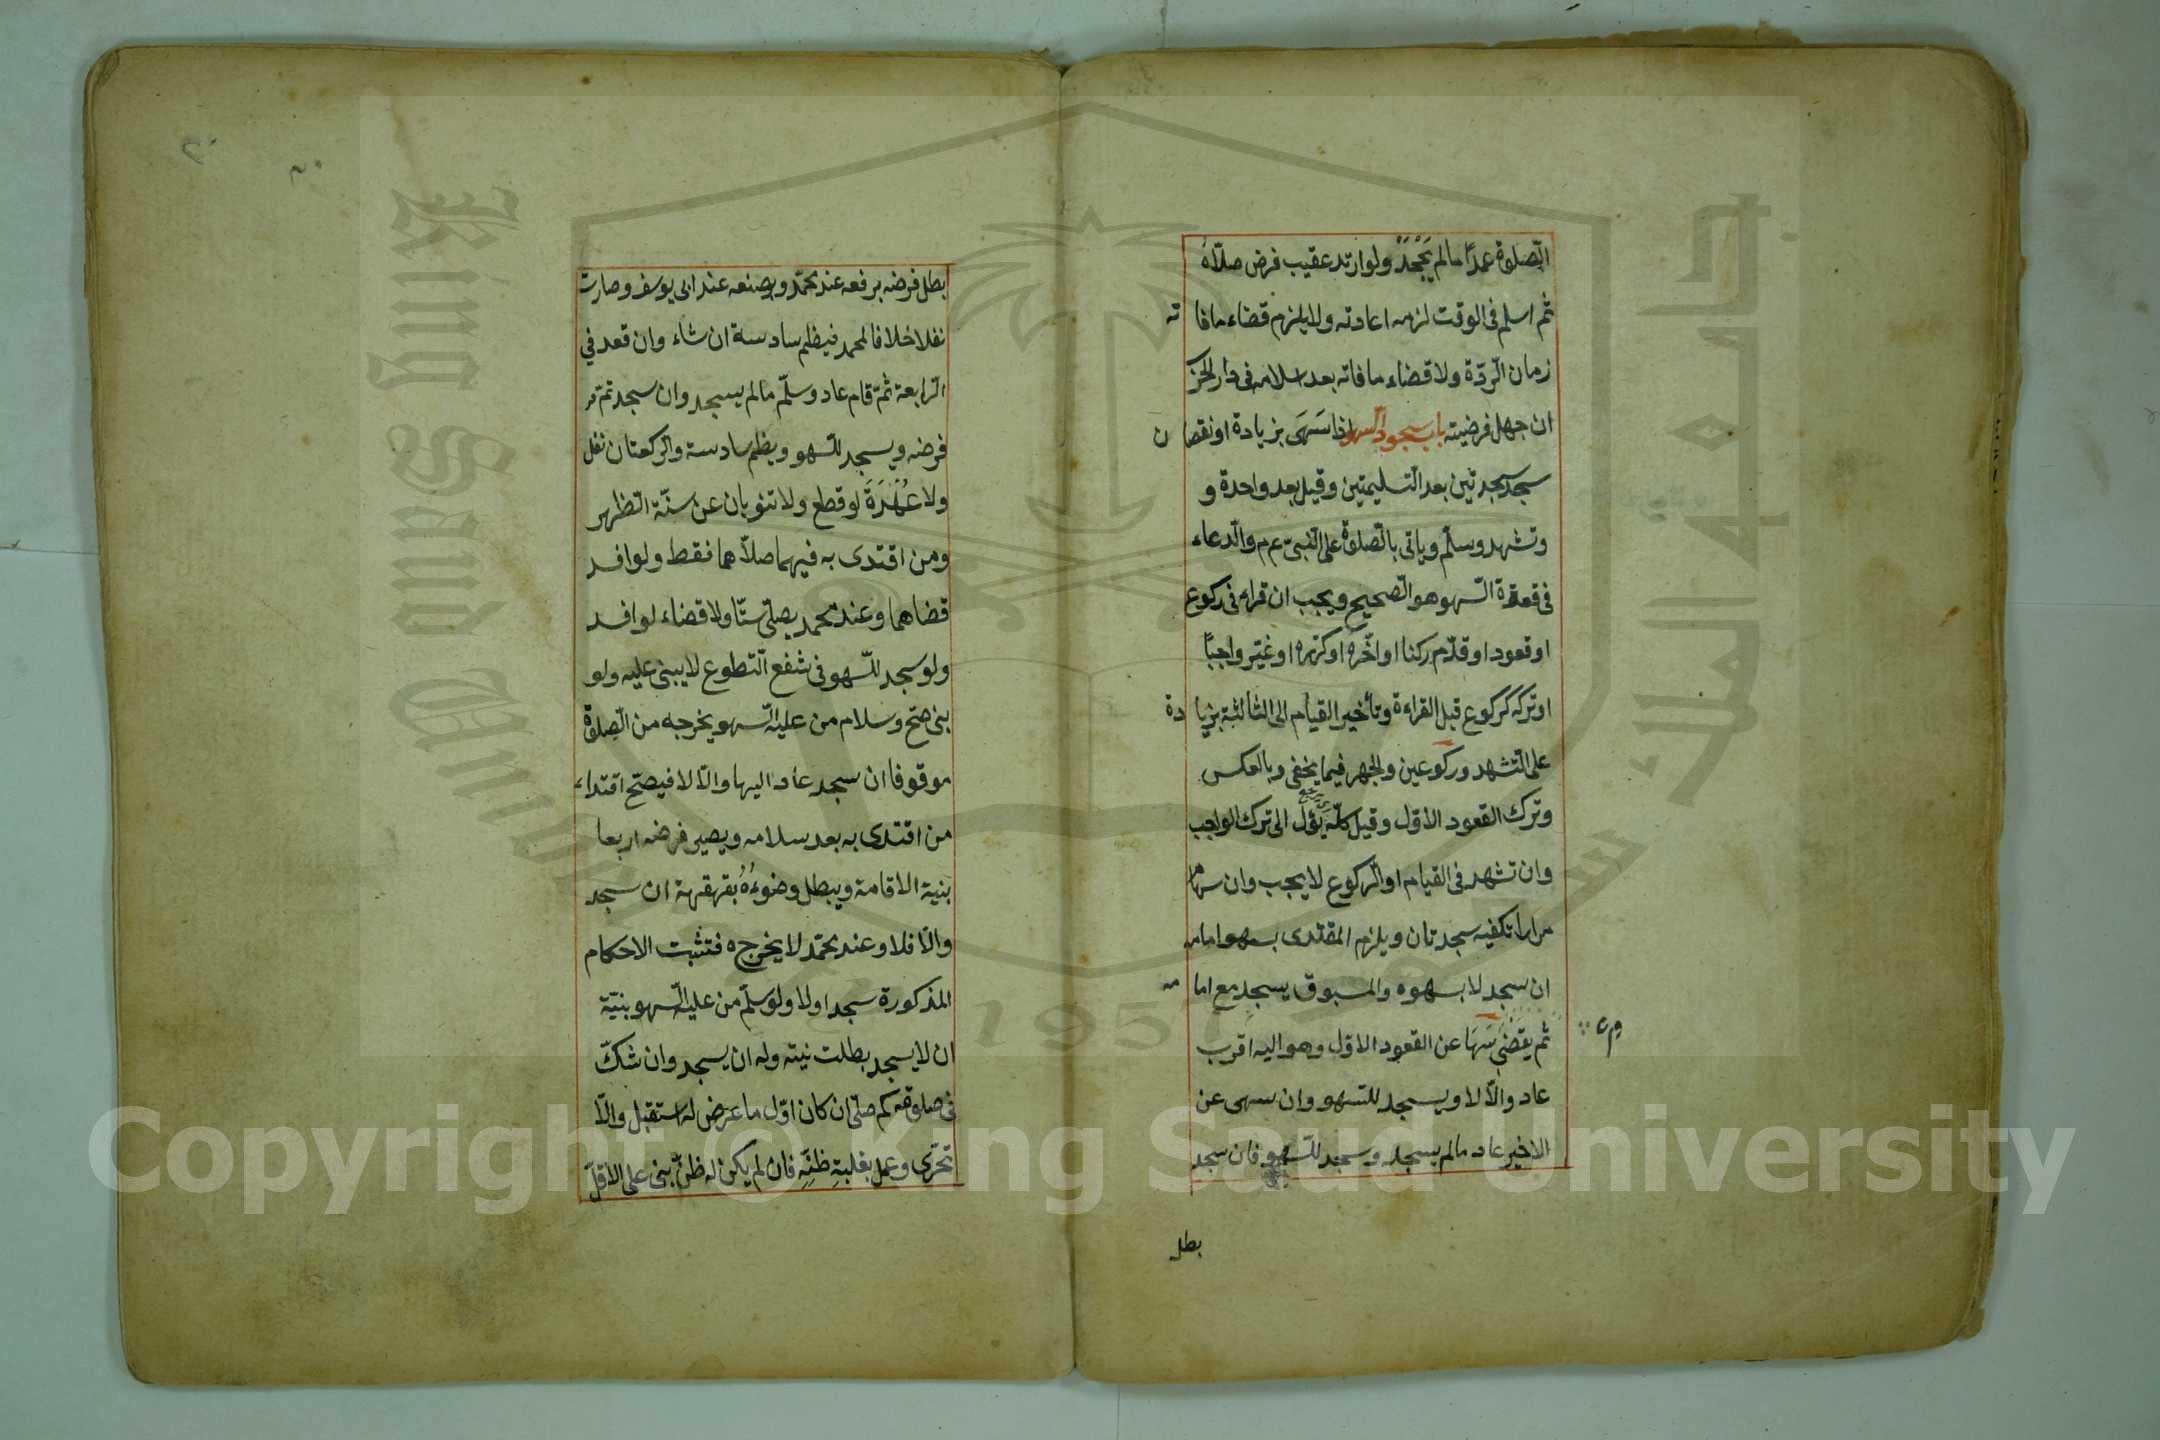 الصّلوة عمدًا مالم يَجْحَدْ ولو ارتد عقيب فرض صلّاهُ
ثم اسلم فى الوقت لزمه اعادته ولا يلزم قضاء ما فاته
زمان الرّدّة ولا قضاء ما فاته بعد اسلامه فى دار الحرب
ان جهل فرضيته باب سجود السّهو اذا سَهَى بزيادة او نقصان
سجد سجدتين بعد التسليمتين وقيل بعد واحدة و
وتشهد وسلّم وياتى بالصّلوة على النبىّ عم والدعاء
فى قعدة السّهو هو الصّحيح ويجب ان قراء فى ركوع
او قعود او قدّم ركنا او اخّره او كرّره او غيّر واجبًا
او تركه كركوع قبل القراءة وتأخير القيام الى الثالثة بزيادة
على التّشهد وركوعين والجهر فيما يخفى وبالعكس
وترك القعود الاوّل وقيل كلّه يَؤُل الى ترك الواجب
وان تشهد فى القيام او الرّكوع لا يجب وان سها
مرارا تكفيه سجدتان ويلزم المقتدى بسهو امامه
ان سجد لا بسهوه والمسبوق يسجد مع امامه
ثم يقضى سَهَا عن القعود الاوّل وهو اليه اقرب
عاد والّا لا ويسجد للسّهو وان سهى عن
الاخير عاد مالم يسجد وسجد للسّهو فان سجد
بطل
بطل فرضه برفعه عند محمّد وبصنعه عند ابى يوسف وصارت
نفلا خلافا لمحمد فيظم سادسة ان شاء وان قعد في
الرّابعة ثمّ قام عاد وسلّم مالم يسجد وان سجد تمّ
فرضه ويسجد للسّهو ويظم سادسة والرّكعتان نفل
ولا عُهْدَةَ لو قطع ولا تنوبان عن سنّة الظّهر
ومن اقتدى به فيهما صلّاهما فقط ولو افسد
قضاهما وعند محمد يصلّى ستّا ولا قضاء لو افسد
ولو سجد للسّهو فى شفع التطوع لا يبنى عليه ولو
بنى صحّ وسلام من عليه السّهو يخرجه من الصّلوة
موقوفا ان سجد عاد اليها والّا لا فيصحّ اقتداء
من اقتدى به بعد سلامه ويصير فرضه اربعا
بنية الاقامة ويبطل وضوءُهُ بقهقهة ان سجد
والّا فلا وعند محمّد لا يخرجه فتثبت الاحكام
المذكورة سجد او لا ولو سلّم من عليه السّهو بنيّة
ان لا يسجد بطلت نيته وله ان يسجد وان شكّ
فى صلوته كم صلّى ان كان اوّل ما عرض له استقبل والّا
تحرّى وعمل بغلبةِ ظنِّهِ فان لم يكن له ظنّ بنى على الاقلّ
Copyright © King Saud University
King Saud University
جامعة الملك سعود
1957